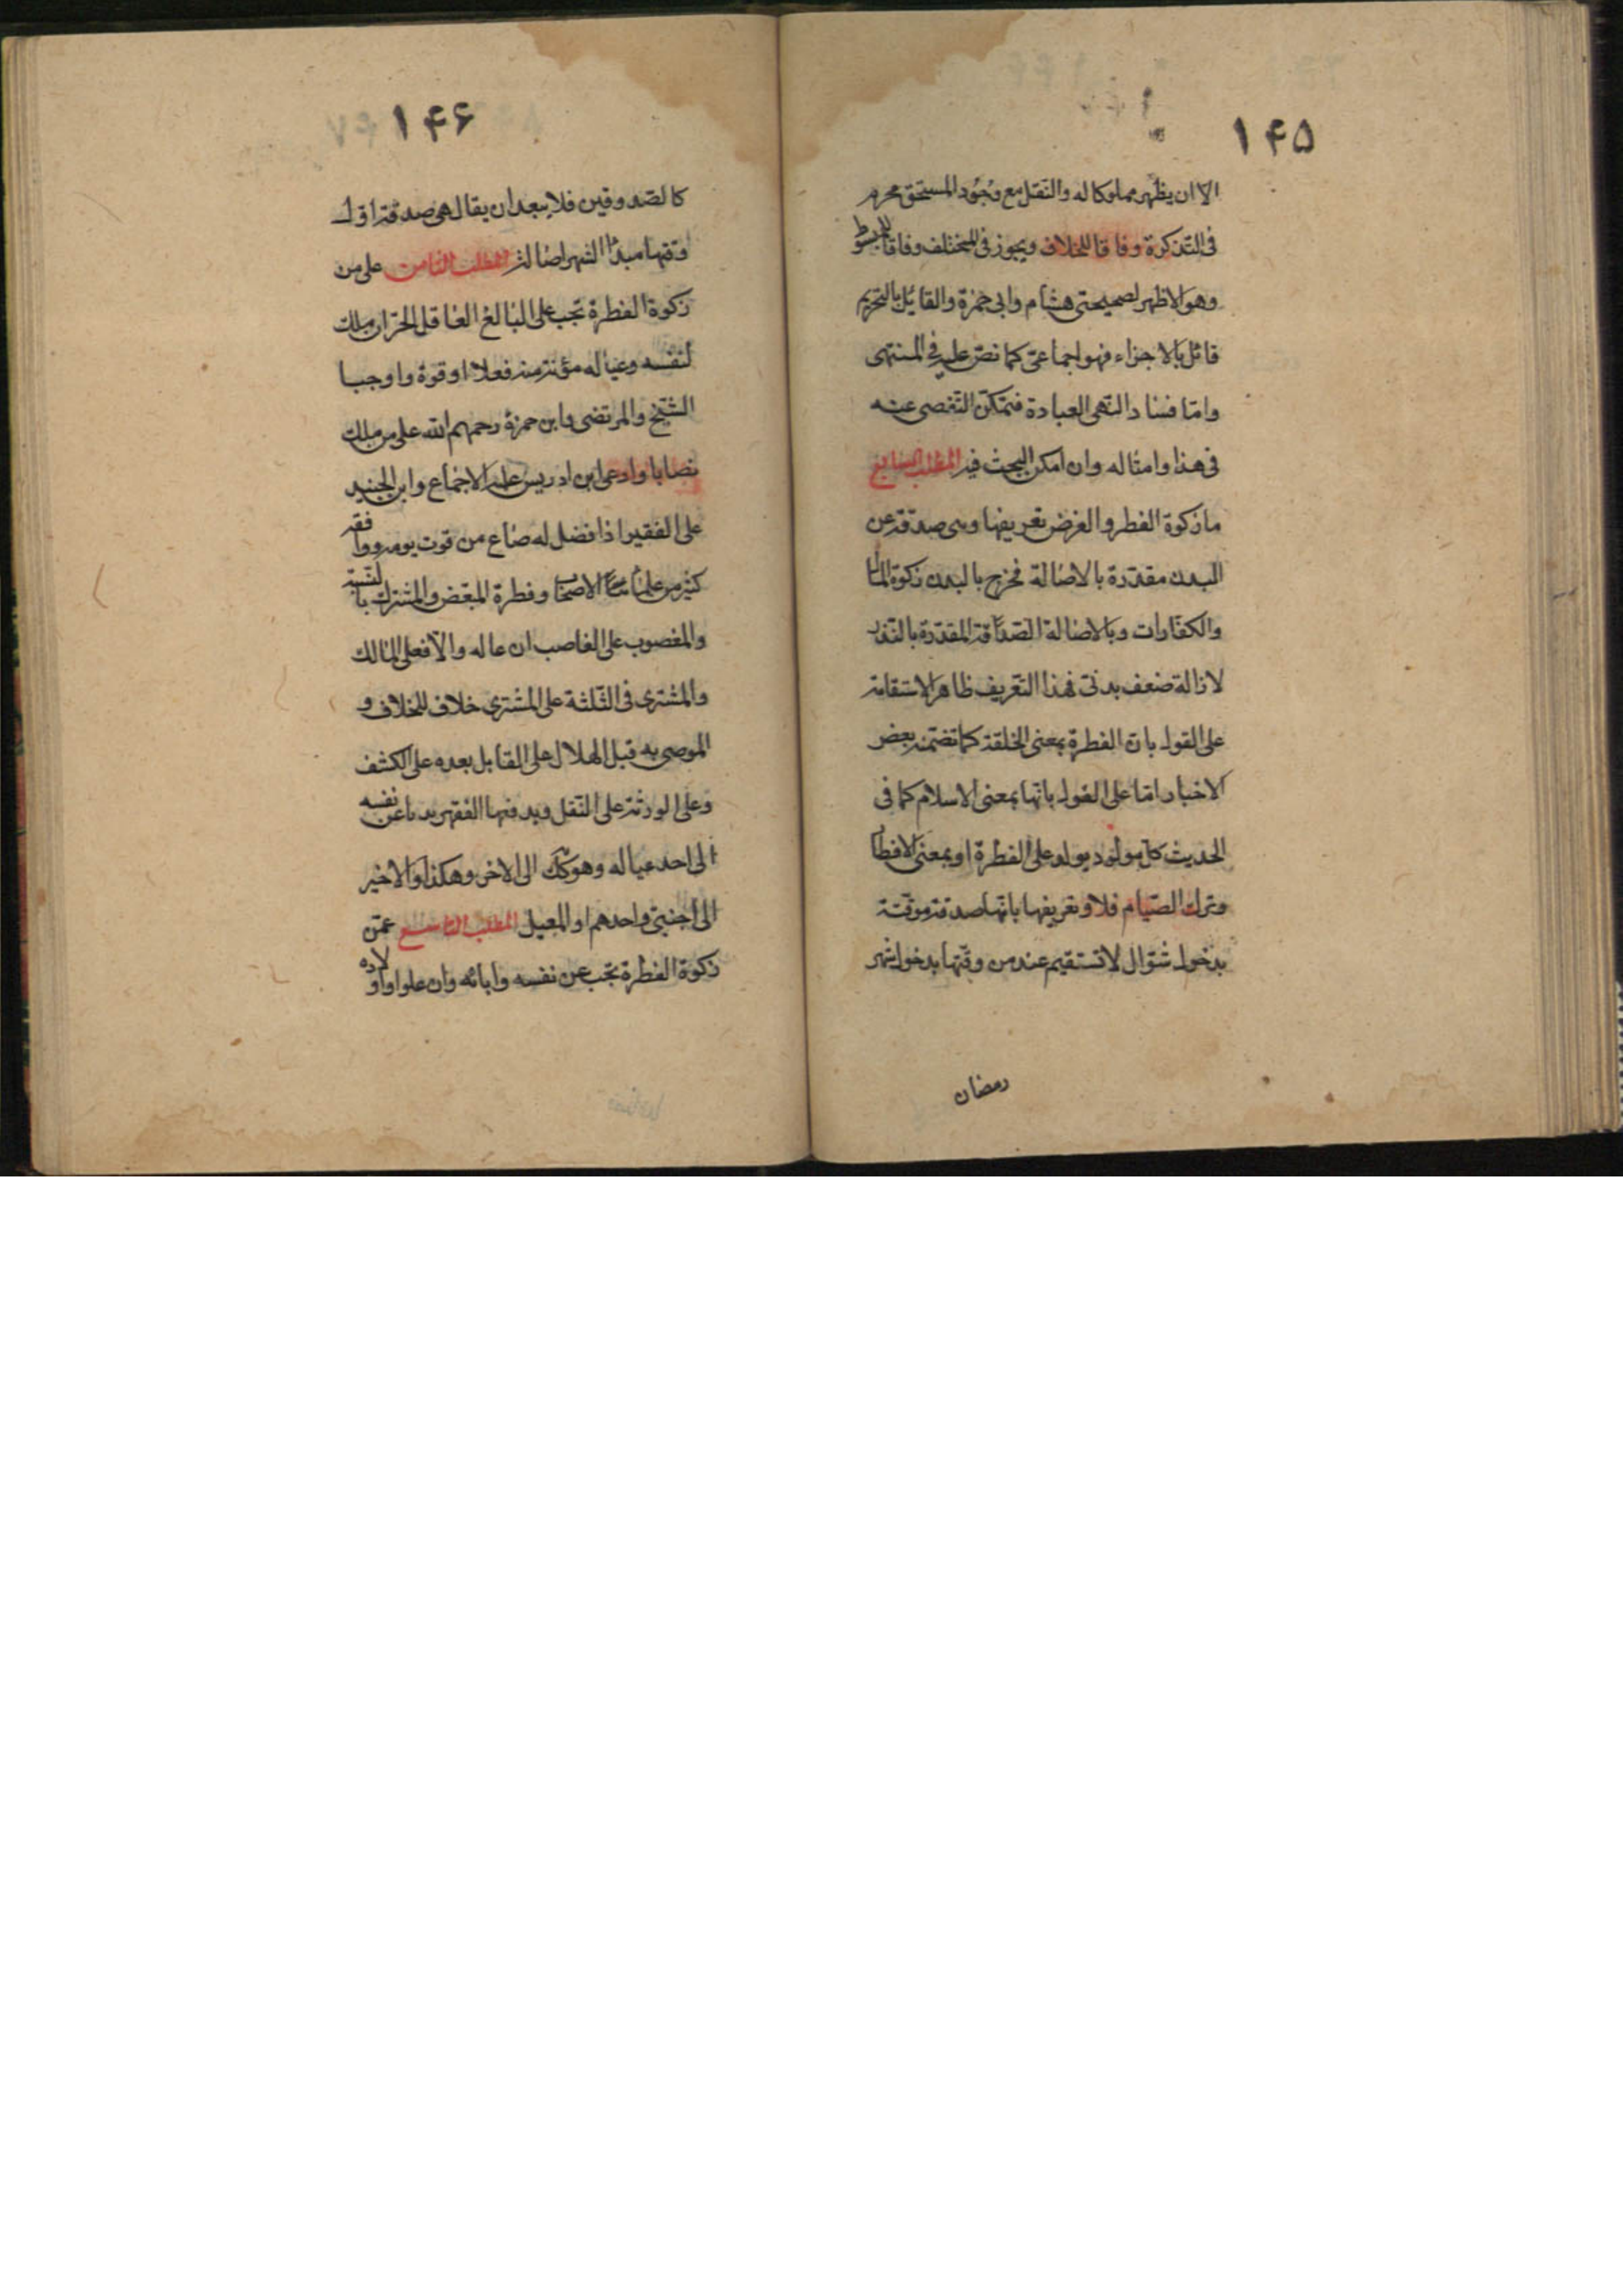 ۱۴۵
الا ان يظهر مملوكا له والنقل مع وجود المستحق محرم
فى التذكرة وفاقا للخلاف ويجوز فى المختلف وفاقا للمبسوط
وهو الاظهر لصحيحتى هشام وابى حمزة والقائل بالتحريم
قائل بالاجزاء فهو اجماعى كما نص عليه فى المنتهى
واما فساد النهى العبادة فيمكن التفصى عنه
فى هذا وامثاله وان امكن البحث فيه المطلب السابع
ما زكوة الفطر والغرض تعريفها وهى صدقة عن
البدن مقدرة بالاصالة فخرج بالبدن زكوة المال
والكفارات وبالاصالة الصدقة المقدرة بالنذر
لازالة ضعف بدنى فهذا التعريف ظاهر الاستقامة
على القول بان الفطرة بمعنى الخلقة كما تضمنه بعض
الاخبار اما على القول بانها بمعنى الاسلام كما فى
الحديث كل مولود يولد على الفطرة او بمعنى الافطا
وترك الصيام فلا وتعريفها بانها صدقة موقتة
بدخول شوال لا تستقيم عند من وقتها بدخول شهر
رمضان
۱۴۶
كالصدوقين فلا يبعد ان يقال هى صدقة اول
وقتها مبدا الشهر اصالة المطلب الثامن على من
زكوة الفطرة تجب على البالغ العاقل الحر ان ملك
لنفسه وعياله مؤنة سنة فعلا او قوة واوجبها
الشيخ والمرتضى وابن حمزة رحمهم الله على من ملك
نصابا وادعى ابن ادريس عليه الاجماع وابن الجنيد
على الفقير اذا فضل له صاع من قوت يومه ووافقه
كثير من علماء الاصحاب وفطرة المبعض والمشترك بالنسبة
والمغصوب على الغاصب ان عاله والا فعلى المالك
والمشترى فى الثلثة على المشترى خلاف للخلاف و
الموصى به قبل الهلال على القابل بعده على الكشف
وعلى الورثة على النقل ويدفعها الفقير ندبا عن نفسه
الى احد عياله وهو كك الى الاخر وهكذا والاخير
الى اجنبى واحدهم او المعيل المطلب التاسع عمن
زكوة الفطرة تجب عن نفسه وابائه وان علوا واولاده